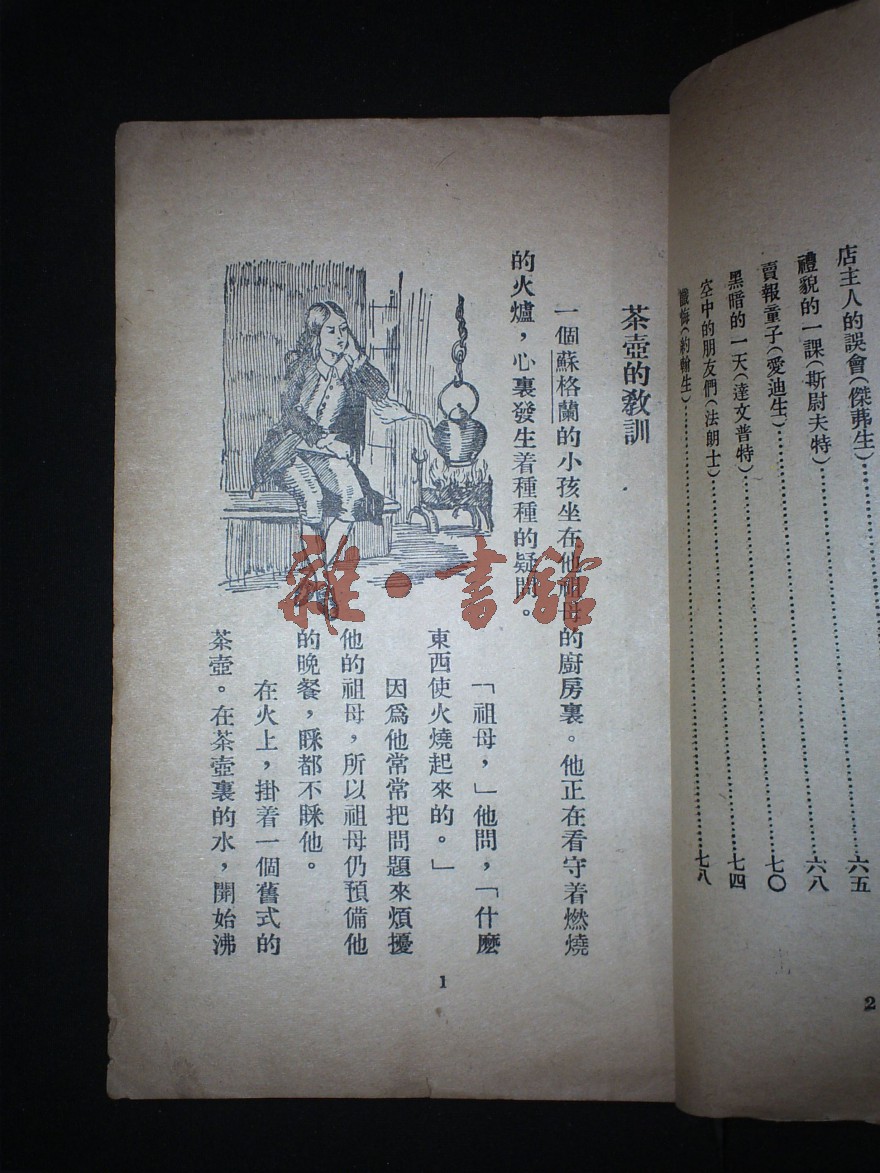 店主人的誤會(傑弗生)……六五
禮貌的一課(斯尉夫特)……六八
賣報童子(愛迪生)……七〇
黑暗的一天(達文普特)……七四
空中的朋友們(法朗士)
懺悔(約翰生)……七八
2
茶壺的教訓
一個蘇格蘭的小孩坐在他祖母的廚房裏。他正在看守着燃燒
的火爐，心裏發生着種種的疑問。
「祖母，」他問，「什麼
東西使火燒起來的。」
因爲他常常把問題來煩擾
他的祖母，所以祖母仍預備他
的晚餐，睬都不睬他。
在火上，掛着一個舊式的
茶壺。在茶壺裏的水，開始沸
1
雜·書館